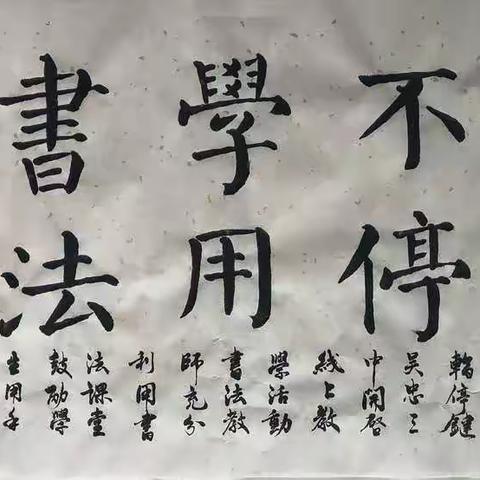 不停
學用
書法
輪停鍵
吳忠三
中開啓
线上教
學活動
書法教
師充分
利用書
法課堂
鼓励學
生用手